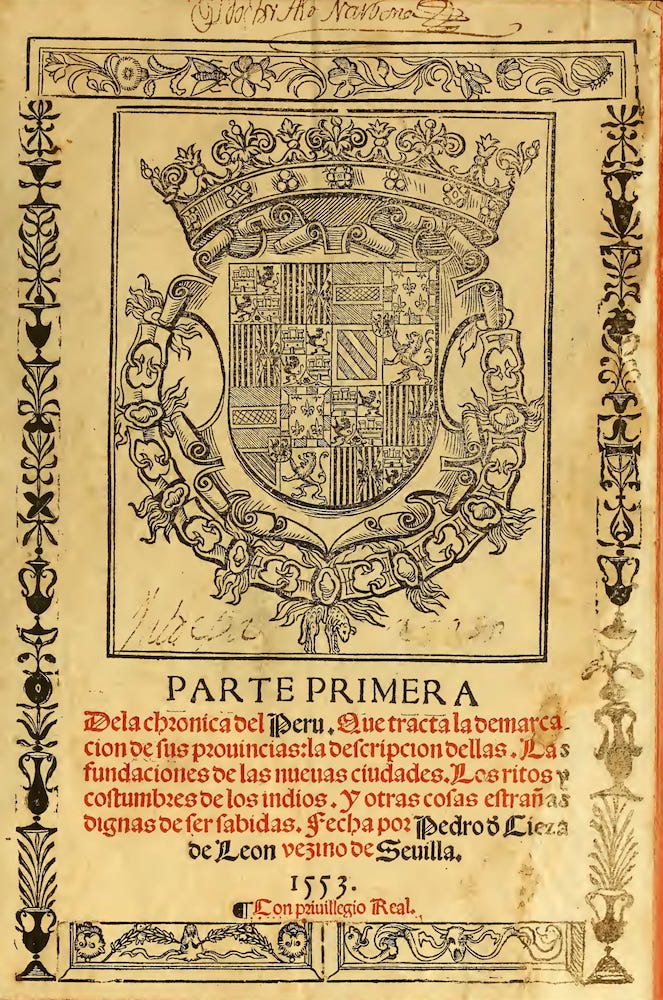 PARTE PRIMERA
Dela chronica del Peru. Que tracta la demarca-
cion de sus prouincias: la descripcion dellas. Las
fundaciones de las nueuas ciudades. Los ritos y
costumbres de los indios. Y otras cosas estrañas
dignas de ser sabidas. Fecha por Pedro d Cieza
de Leon vezino de Seuilla.
1553.
¶Con priuillegio Real.